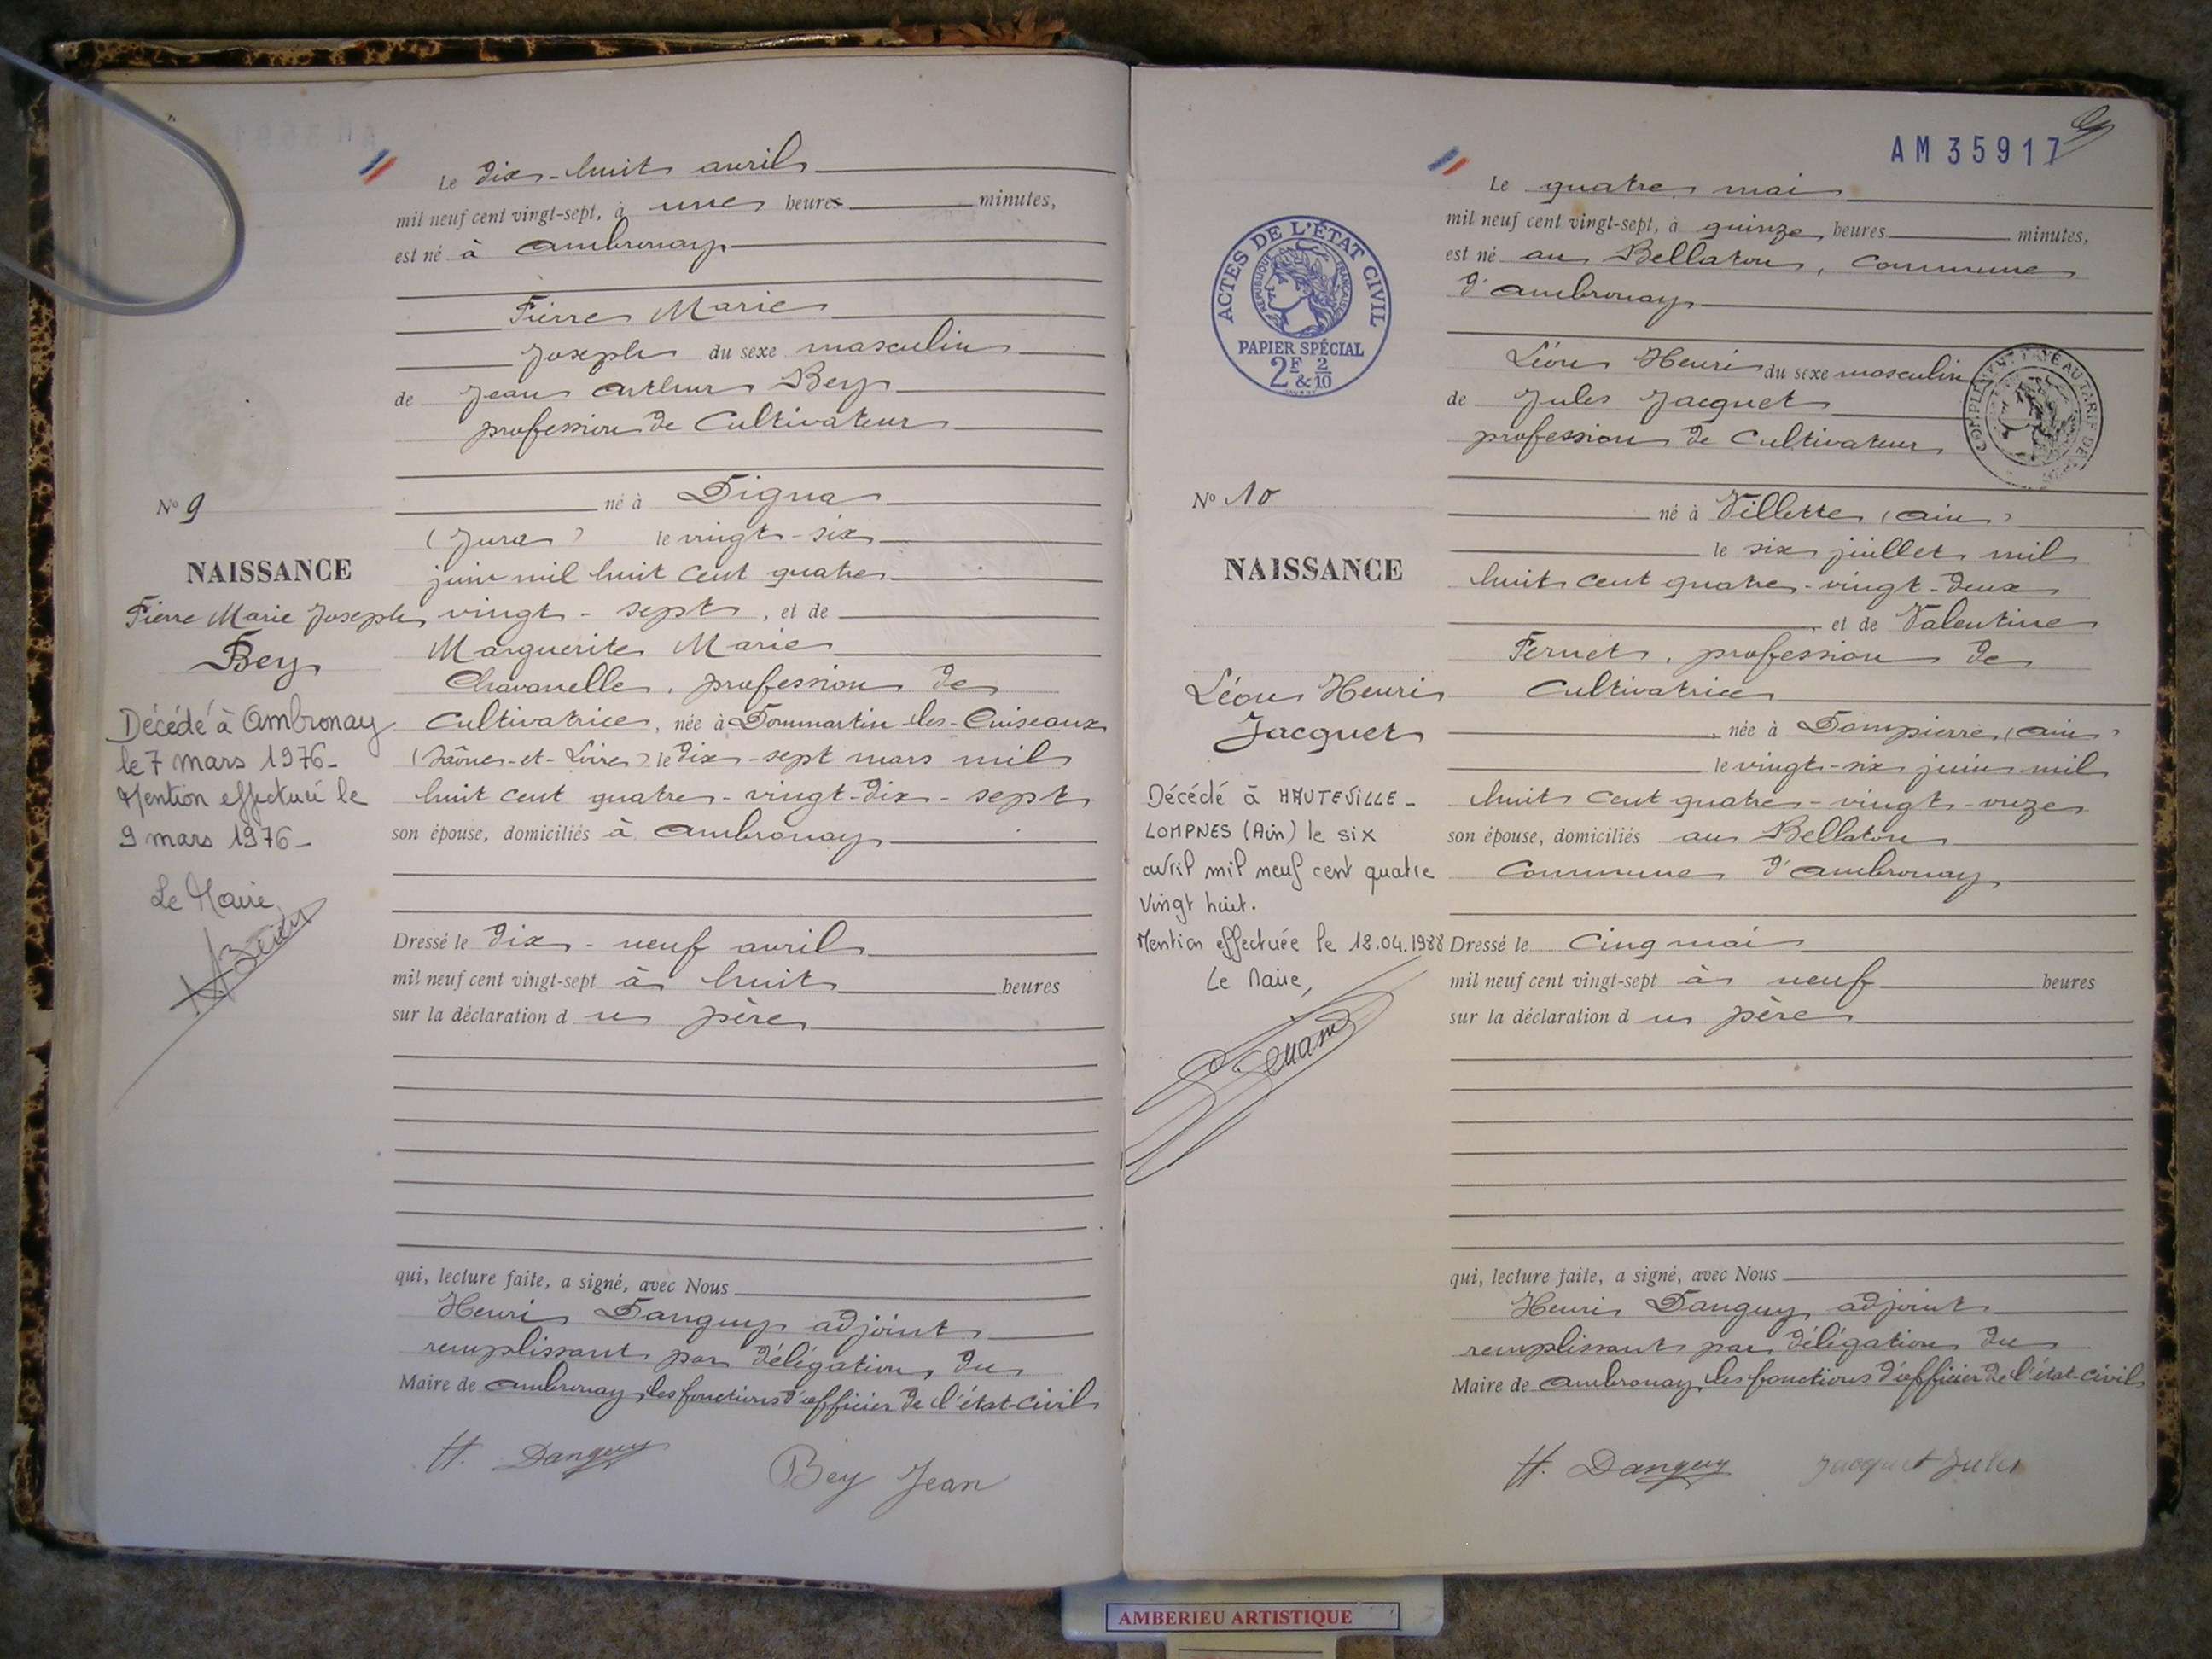 Le dix-huit avril
mil neuf cent vingt-sept, à une heures minutes,
est né à Ambronay
Pierre Marie
Joseph du sexe masculin
de Jean Arthur Bey
profession de Cultivateur
né à Digna
(Jura) le vingt-six
juin mil huit cent quatre
vingt-sept, et de
Marguerite Marie
Chavanelle, profession de
Cultivatrice, née à Dommartin-les-Cuiseaux
(Saône-et-Loire) le dix-sept mars mil
huit cent quatre-vingt-dix-sept
son épouse, domiciliés à Ambronay
Dressé le dix-neuf avril
mil neuf cent vingt-sept à huit heures
sur la déclaration du père
qui, lecture faite, a signé, avec Nous
Henri Danguy adjoint
remplissant par délégation du
Maire de Ambronay, les fonctions d'officier de l'état-civil
H. Danguy Bey Jean
No 9
NAISSANCE
Pierre Marie Joseph
Bey
Décédé à Ambronay
le 7 mars 1976-
Mention effectué le
9 mars 1976-
Le Maire
AM 35917
9
Le quatre mai
mil neuf cent vingt-sept, à quinze heures minutes,
est né au Bellaton, commune
d'Ambronay
Léon Henri du sexe masculin
de Jules Jacquet
profession de Cultivateur
né à Villette (Ain)
le six juillet mil
huit cent quatre-vingt-deux
et de Valentine
Fernet, profession de
Cultivatrice
, née à Dompierre (Ain)
le vingt-six juin mil
huit cent quatre-vingt-onze
son épouse, domiciliés au Bellaton
Commune d'Ambronay
Dressé le cinq mai
mil neuf cent vingt-sept à neuf heures
sur la déclaration du père
qui, lecture faite, a signé, avec Nous
Henri Danguy, adjoint
remplissant par délégation du
Maire de Ambronay, les fonctions d'officier de l'état-civil
H. Danguy Jacquet Jules
ACTES DE L'ÉTAT CIVIL
RÉPUBLIQUE FRANÇAISE
PAPIER SPÉCIAL
2F & 2/10
No 10
NAISSANCE
Léon Henri
Jacquet
Décédé à HAUTEVILLE-
LOMPNES (Ain) le six
avril mil neuf cent quatre
vingt huit.
Mention effectuée le 18.04.1988
Le Maire,
AMBERIEU ARTISTIQUE